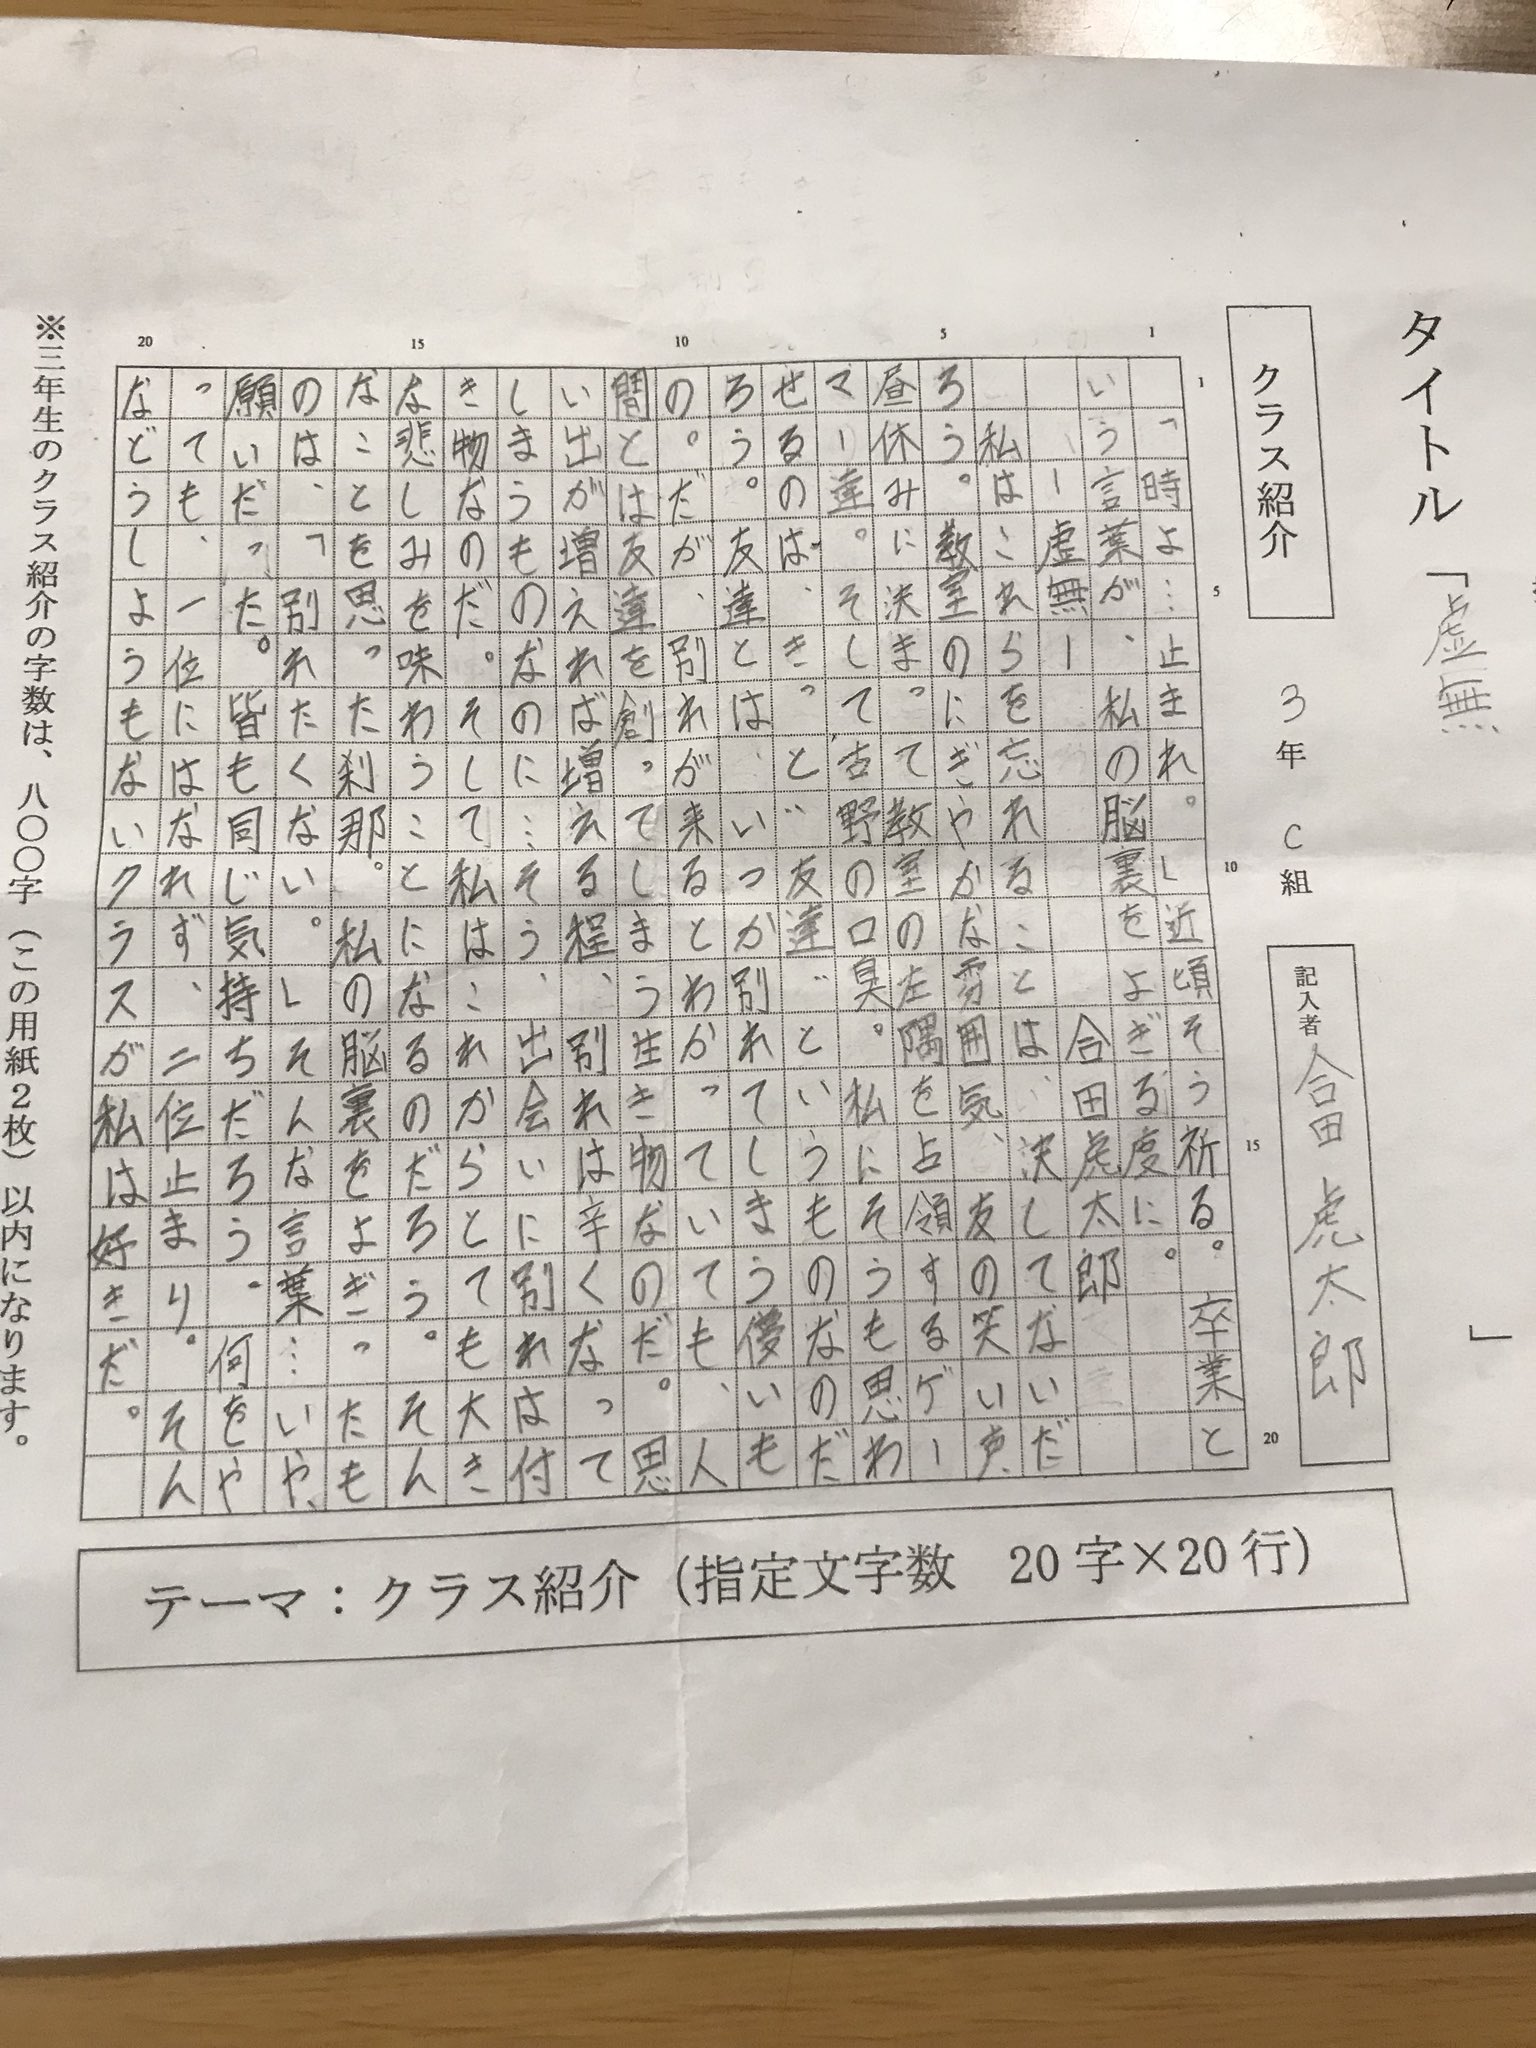 タイトル「虚無」
クラス紹介
3年C組
記入者 合田虎太郎
「時よ…止まれ。」近頃そう祈る。卒業と
いう言葉が、私の脳裏をよぎる度に。
ー虚無ー 合田虎太郎
私はこれらを忘れることは、決してないだ
ろう。教室のにぎやかな雰囲気、友の笑い声、
昼休みに決まって教室の左隅を占領するゲー
マー達。そして古野の口臭。私にそうも思わ
せるのは、きっと〝友達〟というものなのだ
ろう。友達とは、いつか別れてしまう儚いも
の。だが、別れが来るとわかっていても、人
間とは友達を創ってしまう生き物なのだ。思
い出が増えれば増える程、別れは辛くなって
しまうものなのに…そう、出会いに別れは付
き物なのだ。そして私はこれからとても大き
な悲しみを味わうことになるのだろう。そん
なことを思った刹那。私の脳裏をよぎったも
のは、「別れたくない。」そんな言葉…いや、
願いだった。皆も同じ気持ちだろう。何をや
っても、一位にはなれず、二位止まり。そん
などうしようもないクラスが私は好きだ。
※三年生のクラス紹介の字数は、八〇〇字（この用紙2枚）以内になります。
テーマ：クラス紹介（指定文字数 20字×20行）
1
5
10
15
20
1
5
10
15
20